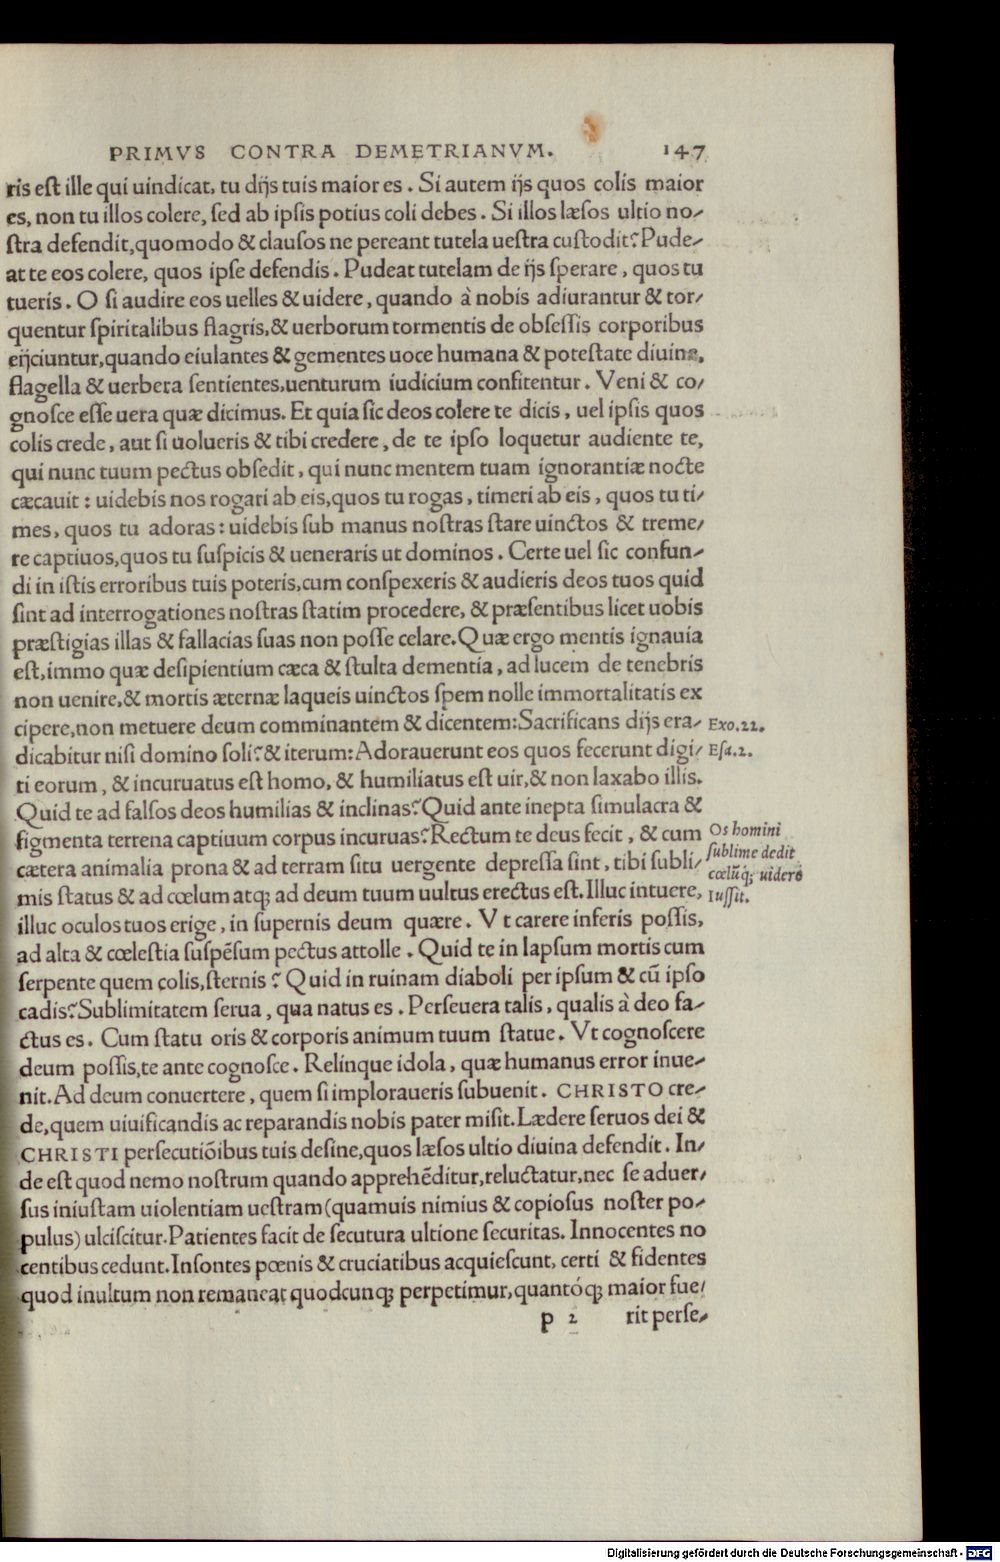 PRIMVS CONTRA DEMETRIANVM. 147
ris est ille qui uindicat, tu dijs tuis maior es. Si autem ijs quos colis maior
es, non tu illos colere, sed ab ipsis potius coli debes. Si illos læsos ultio no-
stra defendit, quomodo & clausos ne pereant tutela uestra custodit? Pude-
at te eos colere, quos ipse defendis. Pudeat tutelam de ijs sperare, quos tu
tueris. O si audire eos uelles & uidere, quando à nobis adiurantur & tor-
quentur spiritalibus flagris, & uerborum tormentis de obsessis corporibus
eijciuntur, quando eiulantes & gementes uoce humana & potestate diuina,
flagella & uerbera sentientes, uenturum iudicium confitentur. Veni & co-
gnosce esse uera quæ dicimus. Et quia sic deos colere te dicis, uel ipsis quos
colis crede, aut si uolueris & tibi credere, de te ipso loquetur audiente te,
qui nunc tuum pectus obsedit, qui nunc mentem tuam ignorantiæ nocte
cæcauit: uidebis nos rogari ab eis, quos tu rogas, timeri ab eis, quos tu ti-
mes, quos tu adoras: uidebis sub manus nostras stare uinctos & treme-
re captiuos, quos tu suspicis & ueneraris ut dominos. Certe uel sic confun-
di in istis erroribus tuis poteris, cum conspexeris & audieris deos tuos quid
sint ad interrogationes nostras statim procedere, & præsentibus licet uobis
præstigias illas & fallacias suas non posse celare. Quæ ergo mentis ignauia
est, immo quæ desipientium cæca & stulta dementia, ad lucem de tenebris
non uenire, & mortis æternæ laqueis uinctos spem nolle immortalitatis ex
cipere, non metuere deum comminantem & dicentem: Sacrificans dijs era- Exo.22.
dicabitur nisi domino soli? & iterum: Adorauerunt eos quos fecerunt digi- Esa.2.
ti eorum, & incuruatus est homo, & humiliatus est uir, & non laxabo illis.
Quid te ad falsos deos humilias & inclinas? Quid ante inepta simulacra &
figmenta terrena captiuum corpus incuruas? Rectum te deus fecit, & cum Os homini
cætera animalia prona & ad terram situ uergente depressa sint, tibi subli- sublime dedit
mis status & ad cœlum atq; ad deum tuum uultus erectus est. Illuc intuere, cœlũq; uidere
illuc oculos tuos erige, in supernis deum quære. Vt carere inferis possis, Iussit.
ad alta & cœlestia suspẽsum pectus attolle. Quid te in lapsum mortis cum
serpente quem colis, sternis? Quid in ruinam diaboli per ipsum & cũ ipso
cadis? Sublimitatem serua, qua natus es. Perseuera talis, qualis à deo fa-
ctus es. Cum statu oris & corporis animum tuum statue. Vt cognoscere
deum possis, te ante cognosce. Relinque idola, quæ humanus error inue-
nit. Ad deum conuertere, quem si imploraueris subuenit. CHRISTO cre-
de, quem uiuificandis ac reparandis nobis pater misit. Lædere seruos dei &
CHRISTI persecutiõibus tuis desine, quos læsos ultio diuina defendit. In-
de est quod nemo nostrum quando apprehẽditur, reluctatur, nec se aduer-
sus iniustam uiolentiam uestram (quamuis nimius & copiosus noster po-
pulus) ulciscitur. Patientes facit de secutura ultione securitas. Innocentes no
centibus cedunt. Insontes pœnis & cruciatibus acquiescunt, certi & fidentes
quod inultum non remaneat quodcunq; perpetimur, quantóq; maior fue-
p 2 rit perse-
Digitalisierung gefördert durch die Deutsche Forschungsgemeinschaft - DFG